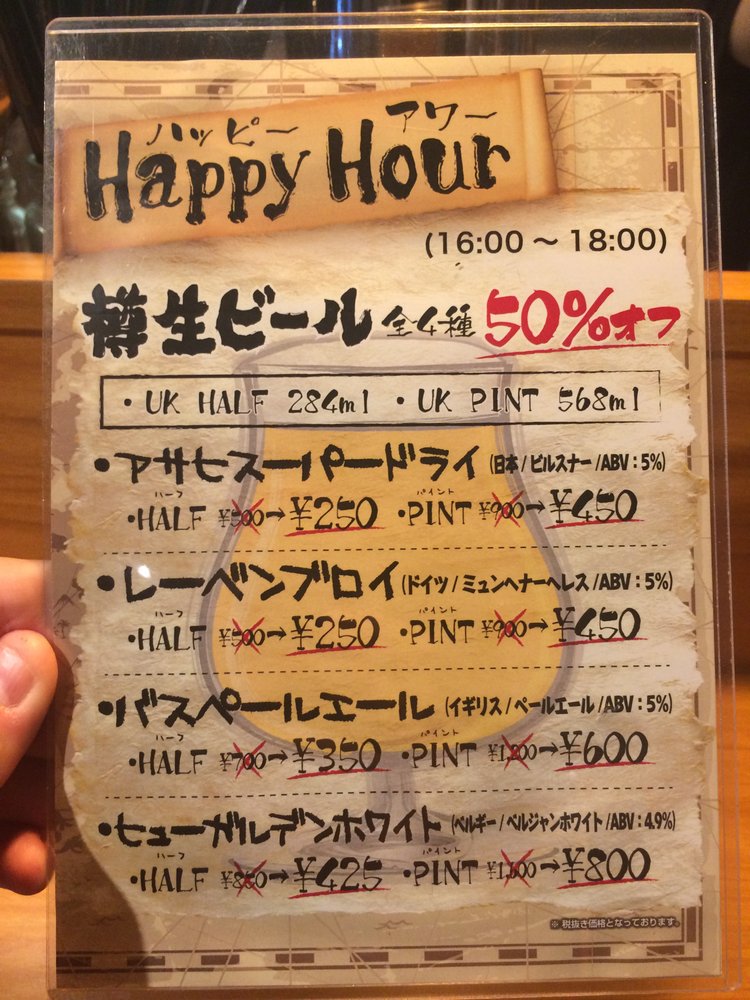 ハッピー アワー
Happy Hour
(16:00 〜 18:00)
樽生ビール 全4種 50%オフ
・UK HALF 284ml ・UK PINT 568ml
・アサヒスーパードライ (日本 / ピルスナー / ABV : 5%)
ハーフ パイント
・HALF ¥500→¥250 ・PINT ¥900→¥450
・レーベンブロイ (ドイツ / ミュンヘナーヘレス / ABV : 5%)
ハーフ パイント
・HALF ¥500→¥250 ・PINT ¥900→¥450
・バスペールエール (イギリス / ペールエール / ABV : 5%)
ハーフ パイント
・HALF ¥700→¥350 ・PINT ¥1,200→¥600
・ヒューガルデンホワイト (ベルギー / ベルジャンホワイト / ABV : 4.9%)
ハーフ パイント
・HALF ¥850→¥425 ・PINT ¥1,600→¥800
※ 税抜き価格となっております。